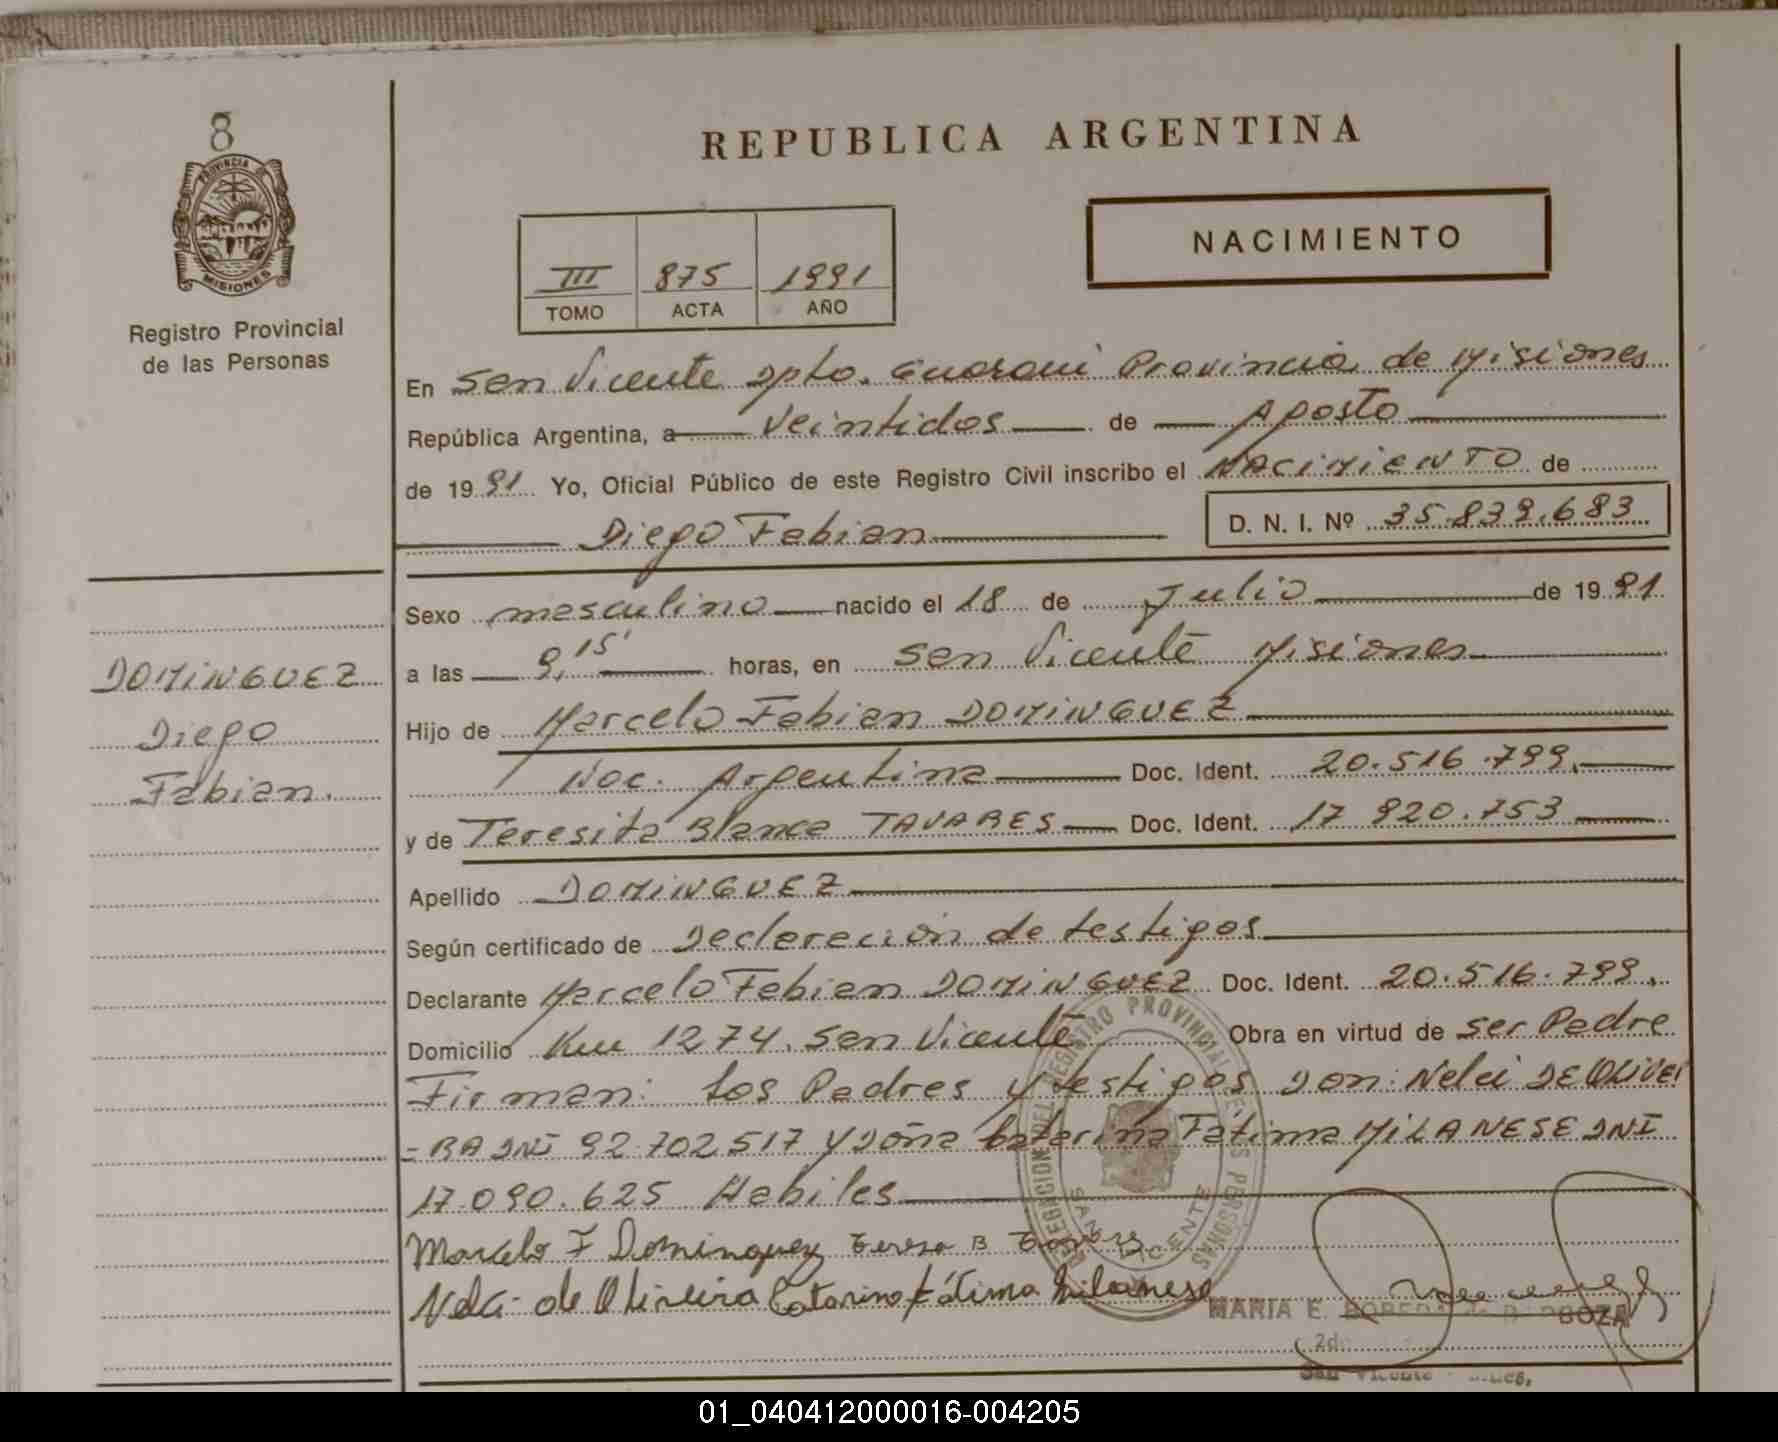 8
PROVINCIA
MISIONES
Registro Provincial
de las Personas
REPUBLICA ARGENTINA
NACIMIENTO
III 875 1991
TOMO ACTA AÑO
En San Vicente Dpto. Guarani Provincia de Misiones
República Argentina, a Veintidos de Agosto
de 1991 Yo, Oficial Público de este Registro Civil inscribo el NACIMIENTO de
Diego Fabian D. N. I. Nº 35.839.683
Sexo masculino nacido el 18 de Julio de 1991
a las 9,15' horas, en San Vicente Misiones
DOMINGUEZ
Diego
Fabian.
Hijo de Marcelo Fabian DOMINGUEZ
Nac. Argentina Doc. Ident. 20.516.799.
y de Teresita Blanca TAVARES Doc. Ident. 17 920.753
Apellido DOMINGUEZ
Según certificado de Declaración de testigos
Declarante Marcelo Fabian DOMINGUEZ Doc. Ident. 20.516.799.
Domicilio Km 1274. San Vicente Obra en virtud de ser Padre
Firman: Los Padres y testigos Don: Nelci DE OLIVEI
=RA DNI 92.702.517 y Doña Catarina Fátima MILANESE DNI
17.090.625 Habiles
Marcelo F Dominguez Teresa B Tavares
Nelci de Oliveira Catarina Fátima Milanese
DELEGACION DEL REGISTRO PROVINCIAL DE LAS PERSONAS
SAN VICENTE
MARIA E. BARBOZA
San Vicente
01_040412000016-004205